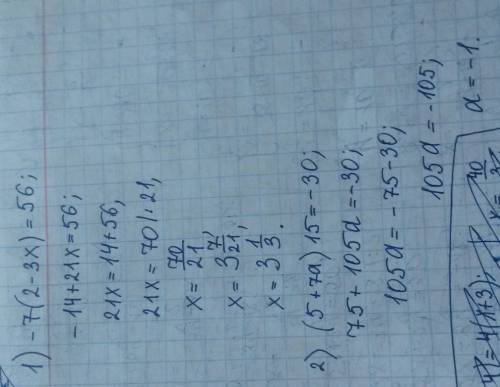 1) -7(2-3x)=56;
-14+21x=56;
21x=14+56,
21x=70|:21,
x=70/21
x=3 7/21,
x=3 1/3.
2) (5+7a)15=-30;
75+105a=-30;
105a=-75-30;
105a=-105;
a=-1.